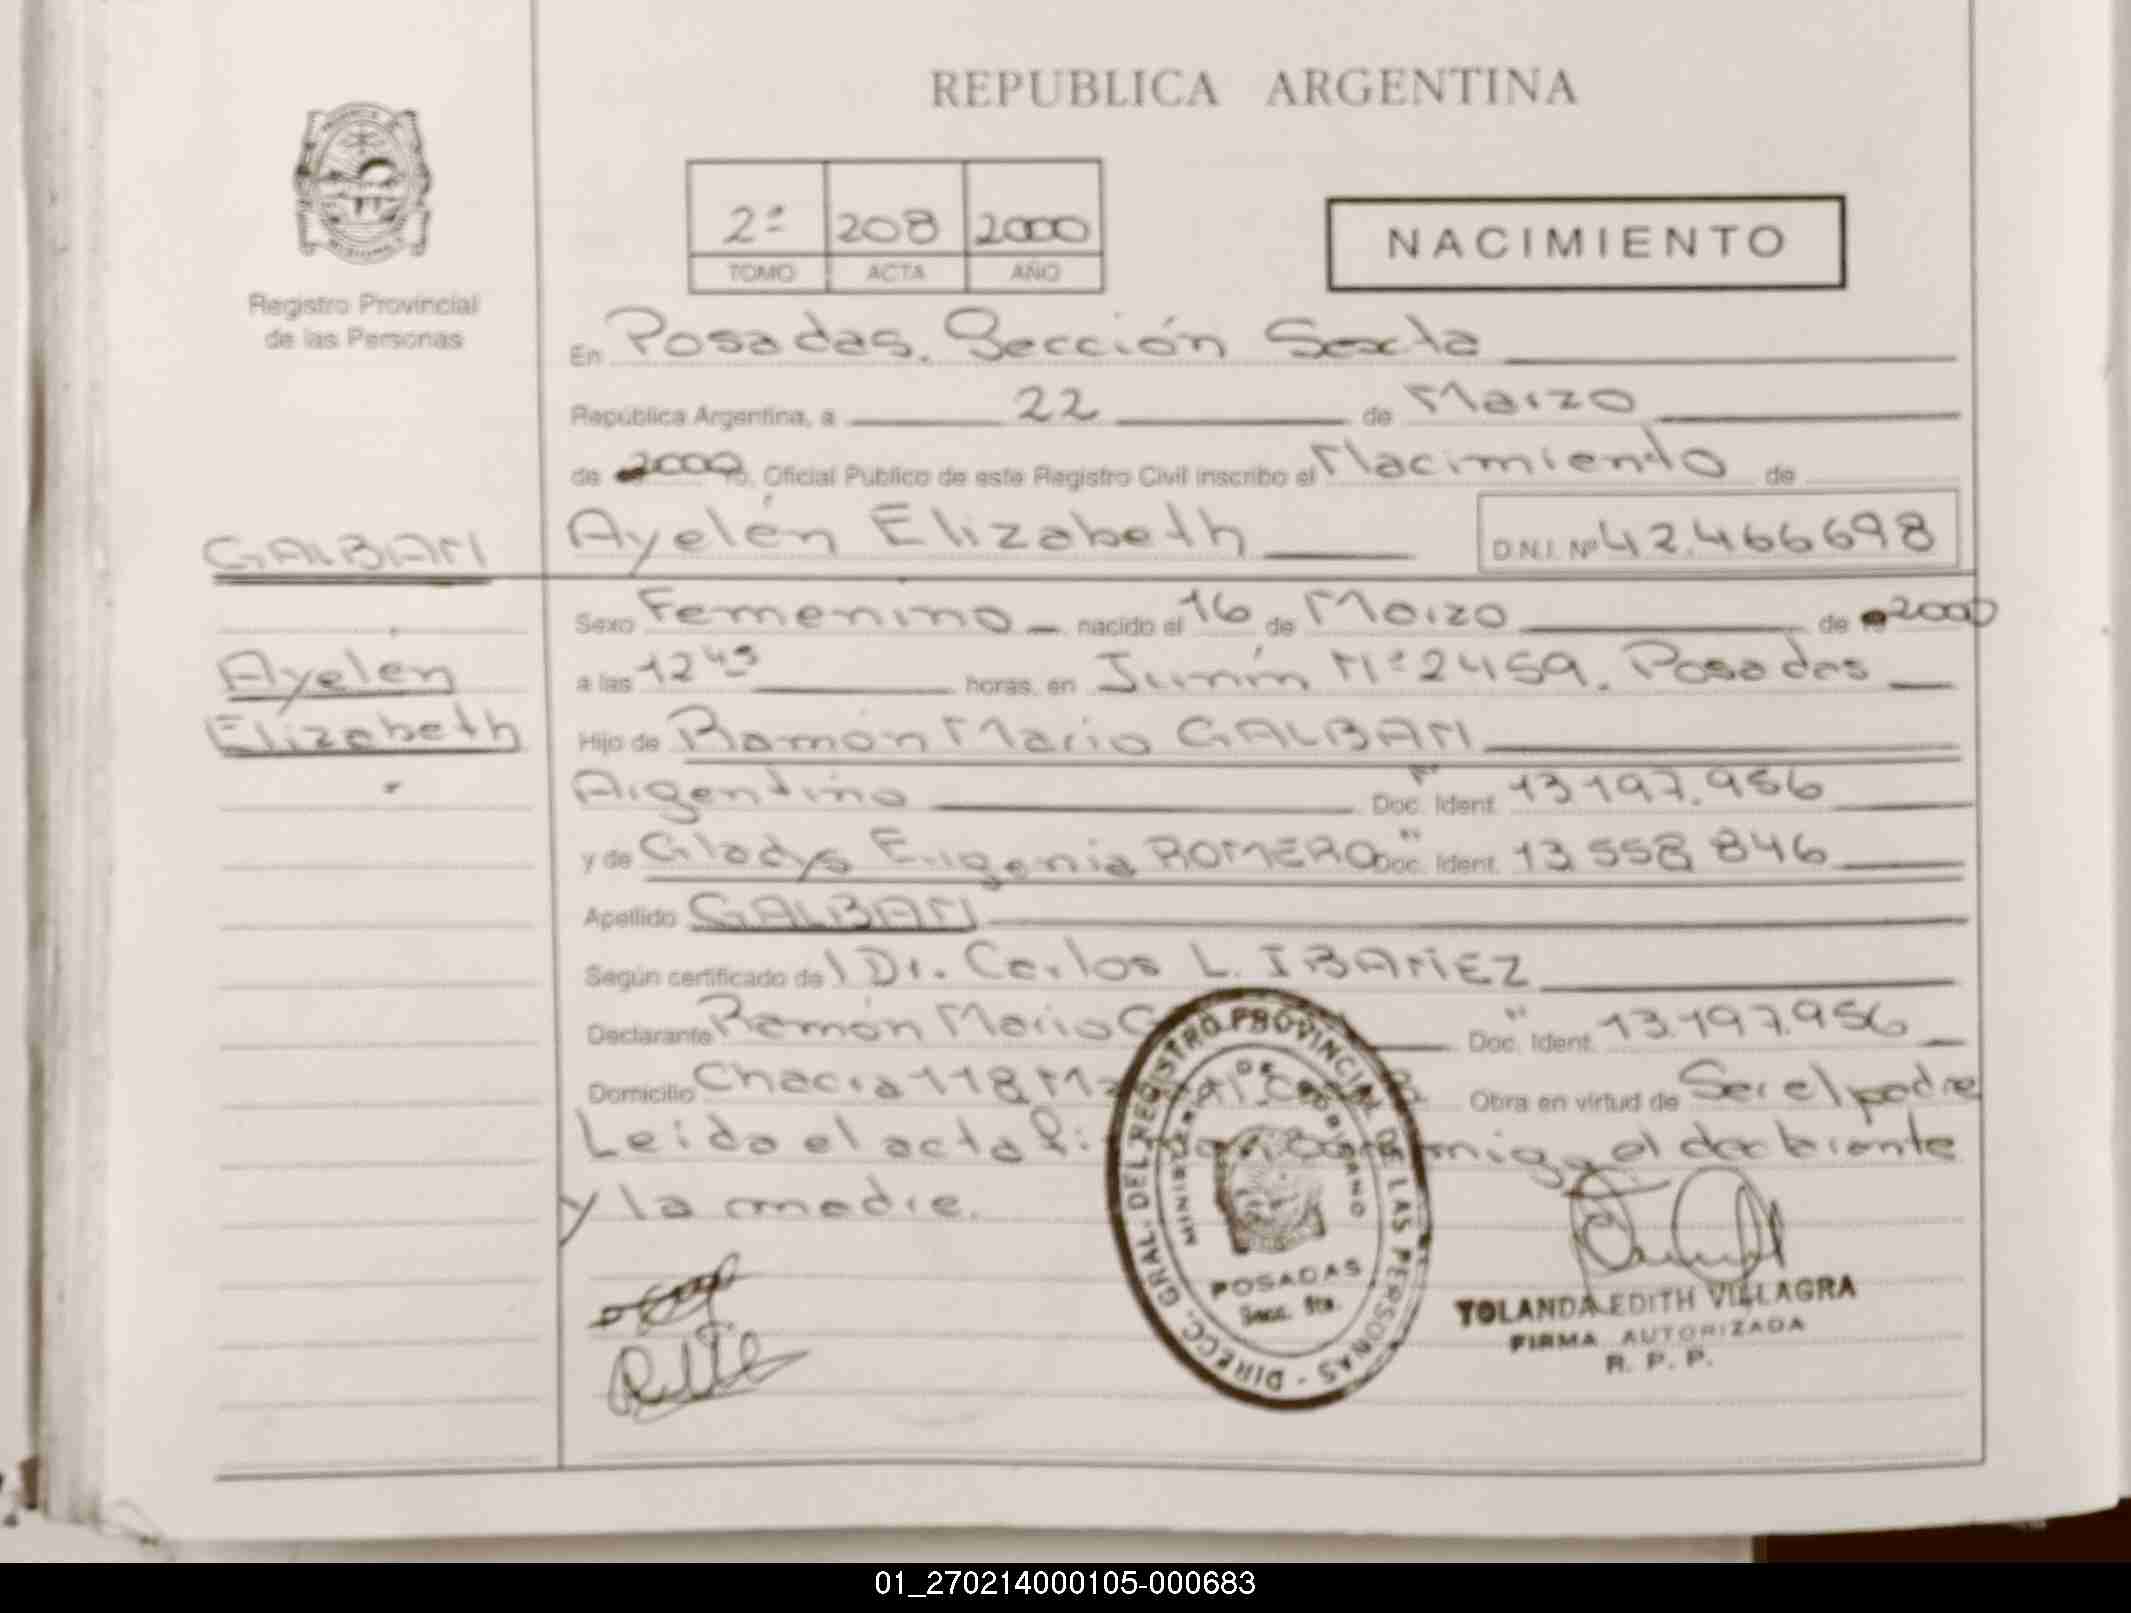 REPUBLICA ARGENTINA
2ª 208 2000
TOMO ACTA AÑO
NACIMIENTO
Registro Provincial
de las Personas
En Posadas. Sección Sexta
República Argentina, a 22 de Marzo
de 2000, Oficial Público de este Registro Civil inscribo el Nacimiento de
GALBAN
Ayelén Elizabeth D.N.I. Nº 42.466698
Sexo Femenino nacido el 16 de Marzo de 2000
Ayelen
a las 12 45 horas, en Junín Nº 2459. Posadas
Elizabeth
Hijo de Ramón Mario GALBAN
Argentino Doc. Ident. 13.197.956
y de Gladys Eugenia ROMERO Doc. Ident. 13.558.846
Apellido GALBAN
Según certificado de l Dr. Carlos L. IBAÑEZ
Declarante Ramón Mario Doc. Ident. 13.197.956
Domicilio Chacra 118 Obra en virtud de Ser el padre
Leida el acta el declarante
y la madre.
DIRECC. GRAL. DEL REGISTRO PROVINCIAL DE LAS PERSONAS
POSADAS
Secc. 6ta.
YOLANDA EDITH VILLAGRA
FIRMA AUTORIZADA
R. P. P.
01_270214000105-000683